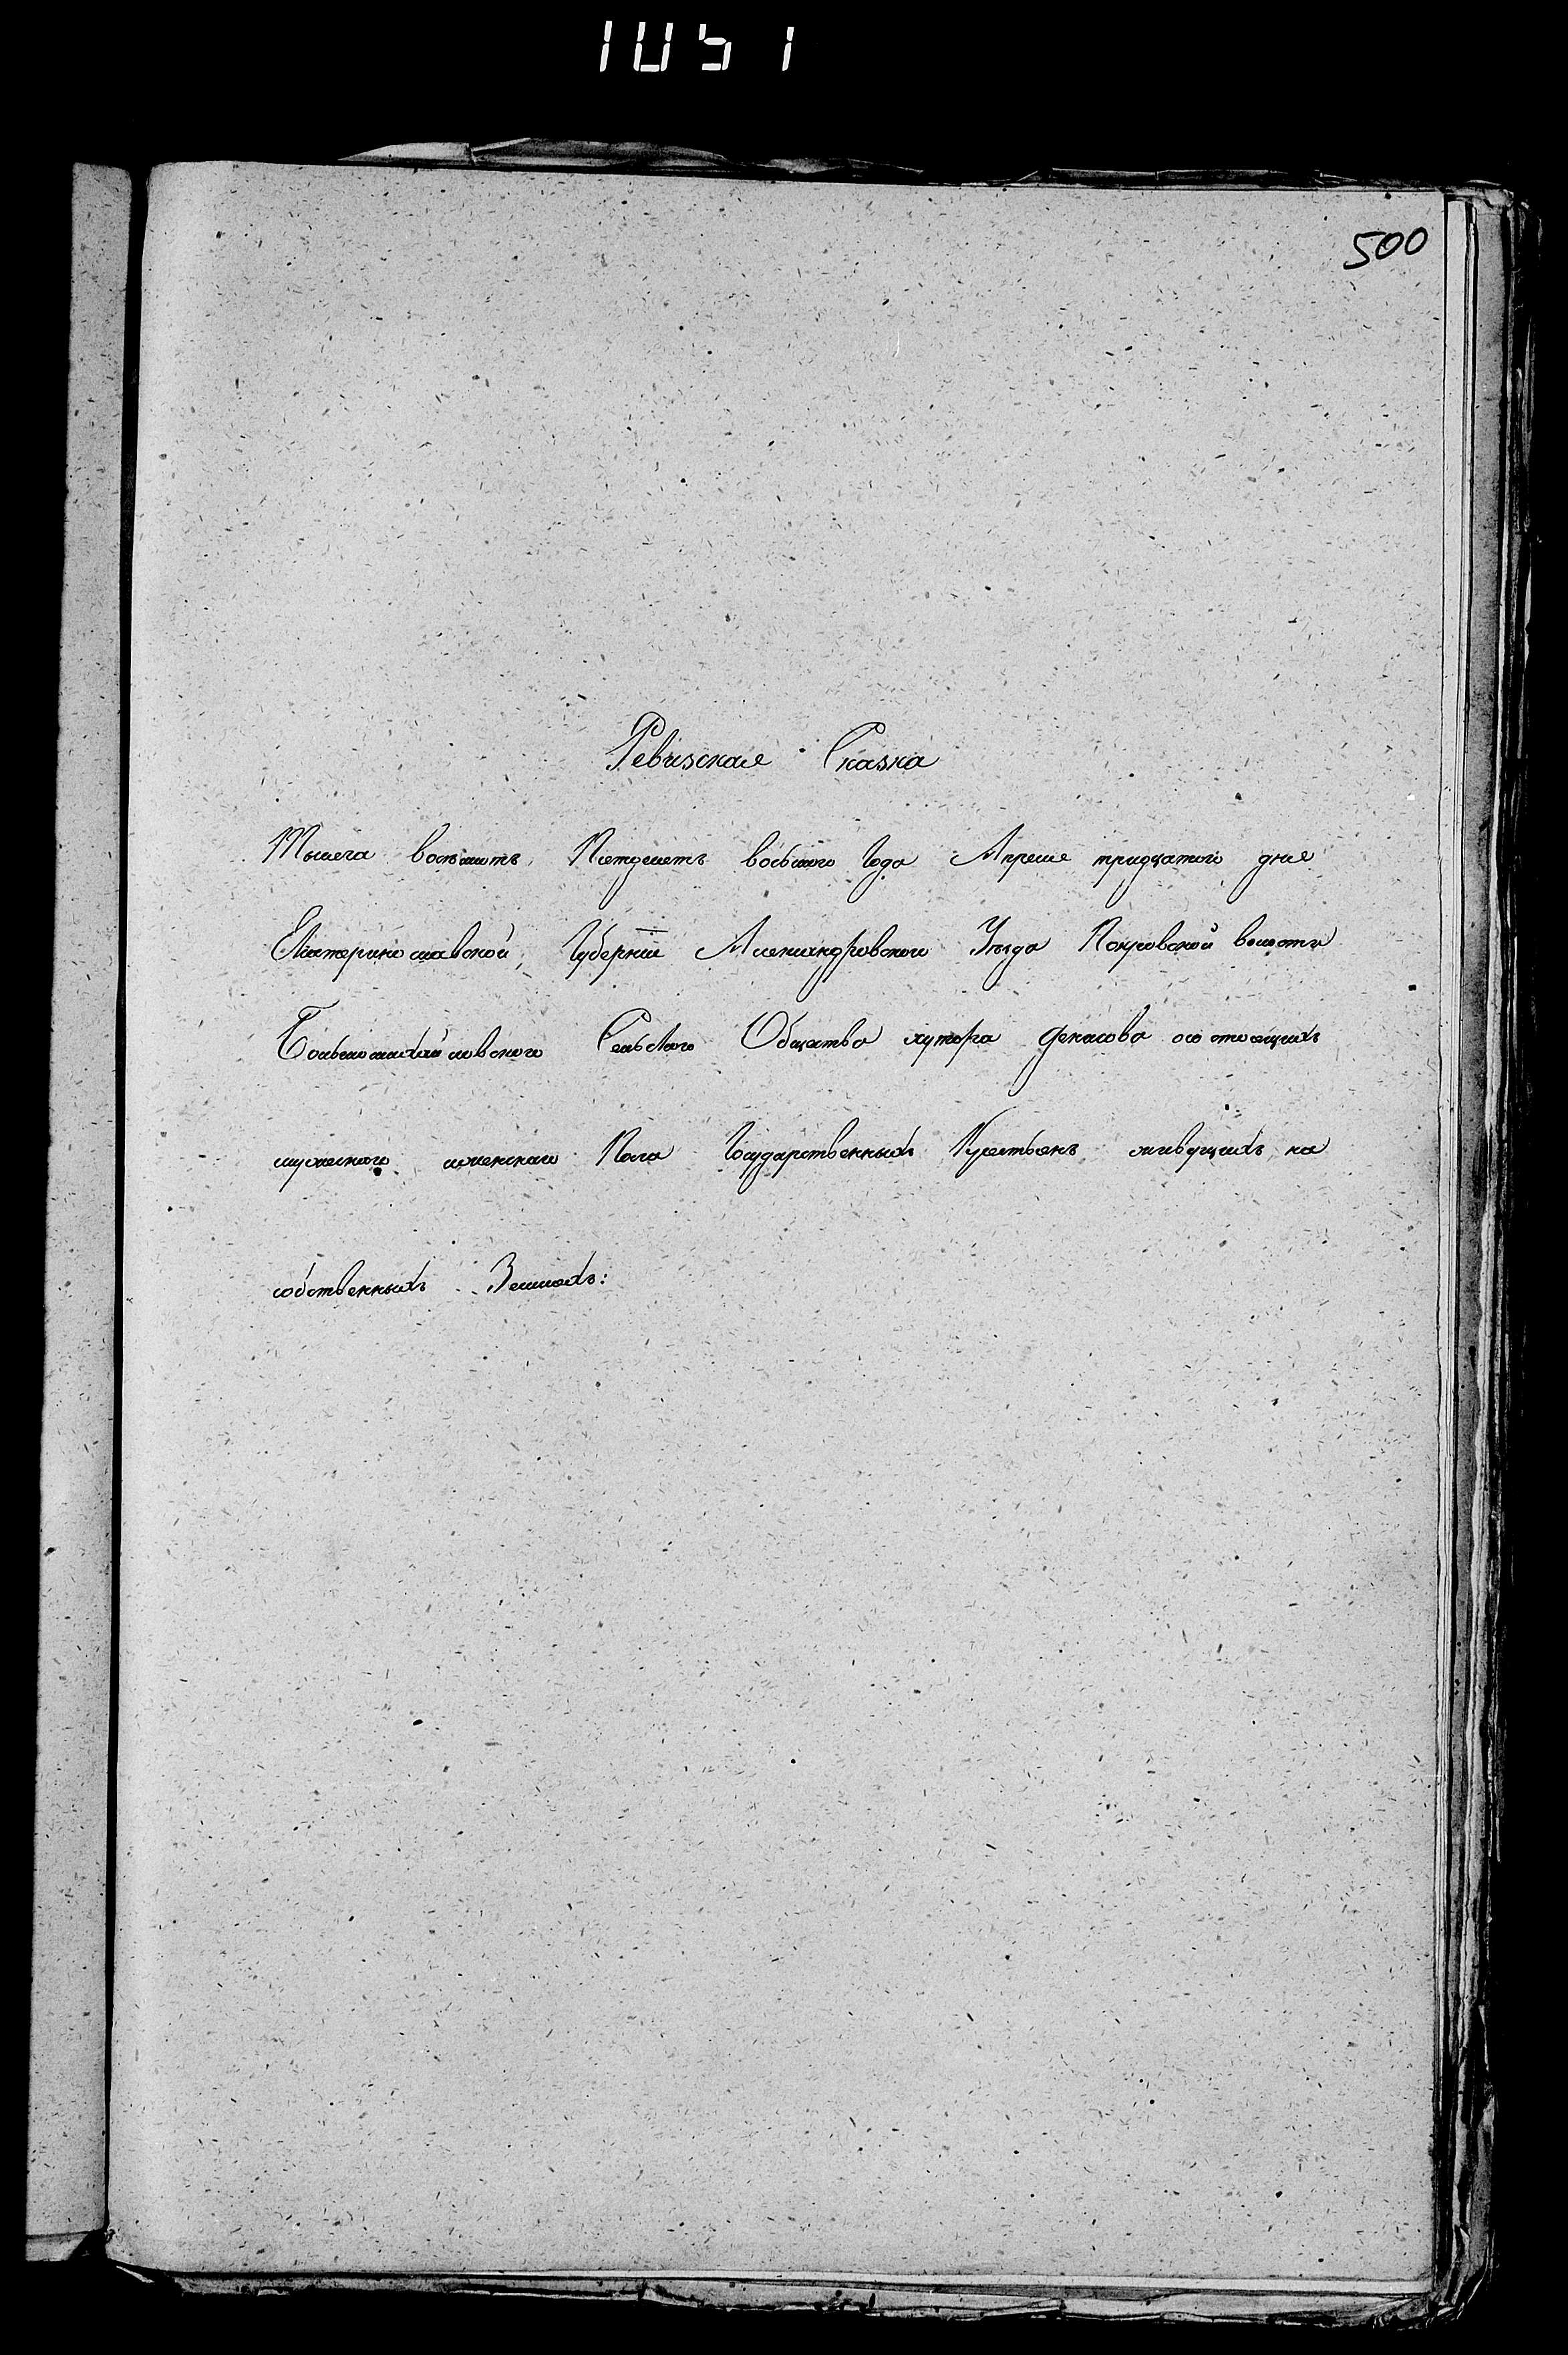 1051
500
Ревизская Сказка
Тысеча восемьсотъ Петдесетъ восьмого Года Апреле тридцатого дне
Екатеринославской, Губерніи Александровского Уѣзда Покровской волости
Больше Михайловского Сельского Общества хутора состоещихъ
мужеского женскаго Пола Государственныхъ Крестьенъ живущихъ на
собственныхъ Землехъ: